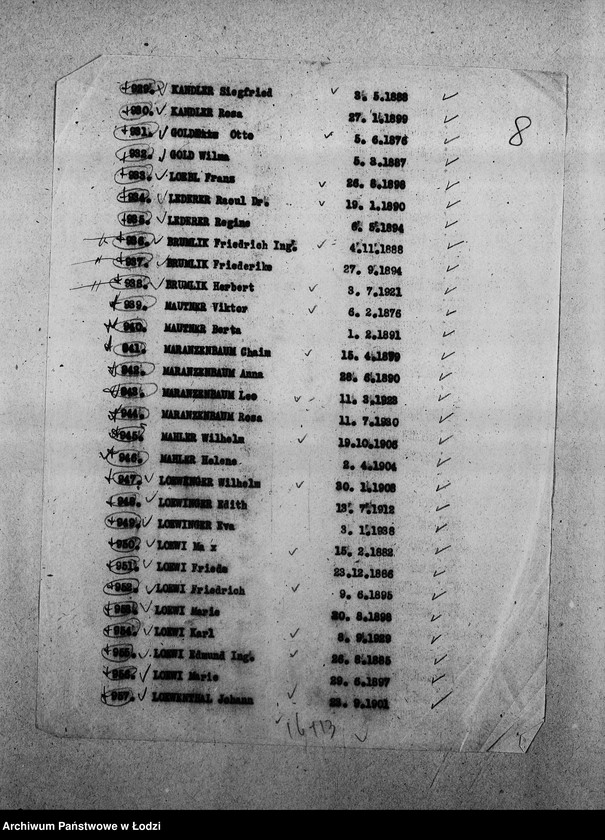 929. KANDLER Siegfried 3. 5.1888
930. KANDLER Rosa 27. 1.1899
931. Otto 5. 6.1876
932. GOLD Wilma 5. 3.1887
933. LOEBL Franz 26. 8.1898
934. LEDERER Raoul Dr. 19. 1.1890
935. LEDERER Regine 6. 5.1894
936. BRUMLIK Friedrich Ing. 4.11.1888
937. BRUMLIK Friederike 27. 9.1894
938. BRUMLIK Herbert 3. 7.1921
939. MAUTNER Viktor 6. 2.1876
940. MAUTNER Berta 1. 2.1891
941. MARANZENBAUM Chaim 15. 4.1899
942. MARANZENBAUM Anna 26. 6.1890
943. MARANZENBAUM Leo 11. 3.1923
944. MARANZENBAUM Rosa 11. 7.1930
945. MAHLER Wilhelm 19.10.1906
946. MAHLER Helene 2. 4.1904
947. LOEWINGER Wilhelm 30. 1.1908
948. LOEWINGER Edith 13. 7.1912
949. LOEWINGER Eva 3. 1.1938
950. LOEWI Ma x 15. 2.1882
951. LOEWI Frieda 23.12.1886
952. LOEWI Friedrich 9. 6.1895
953. LOEWI Marie 30. 8.1898
954. LOEWI Karl 8. 9.1929
955. LOEWI Edmund Ing. 26. 8.1885
956. LOEWI Marie 29. 6.1897
957. LOEWENTHAL Johann 23. 9.1901
8
16+13
Archiwum Państwowe w Łodzi